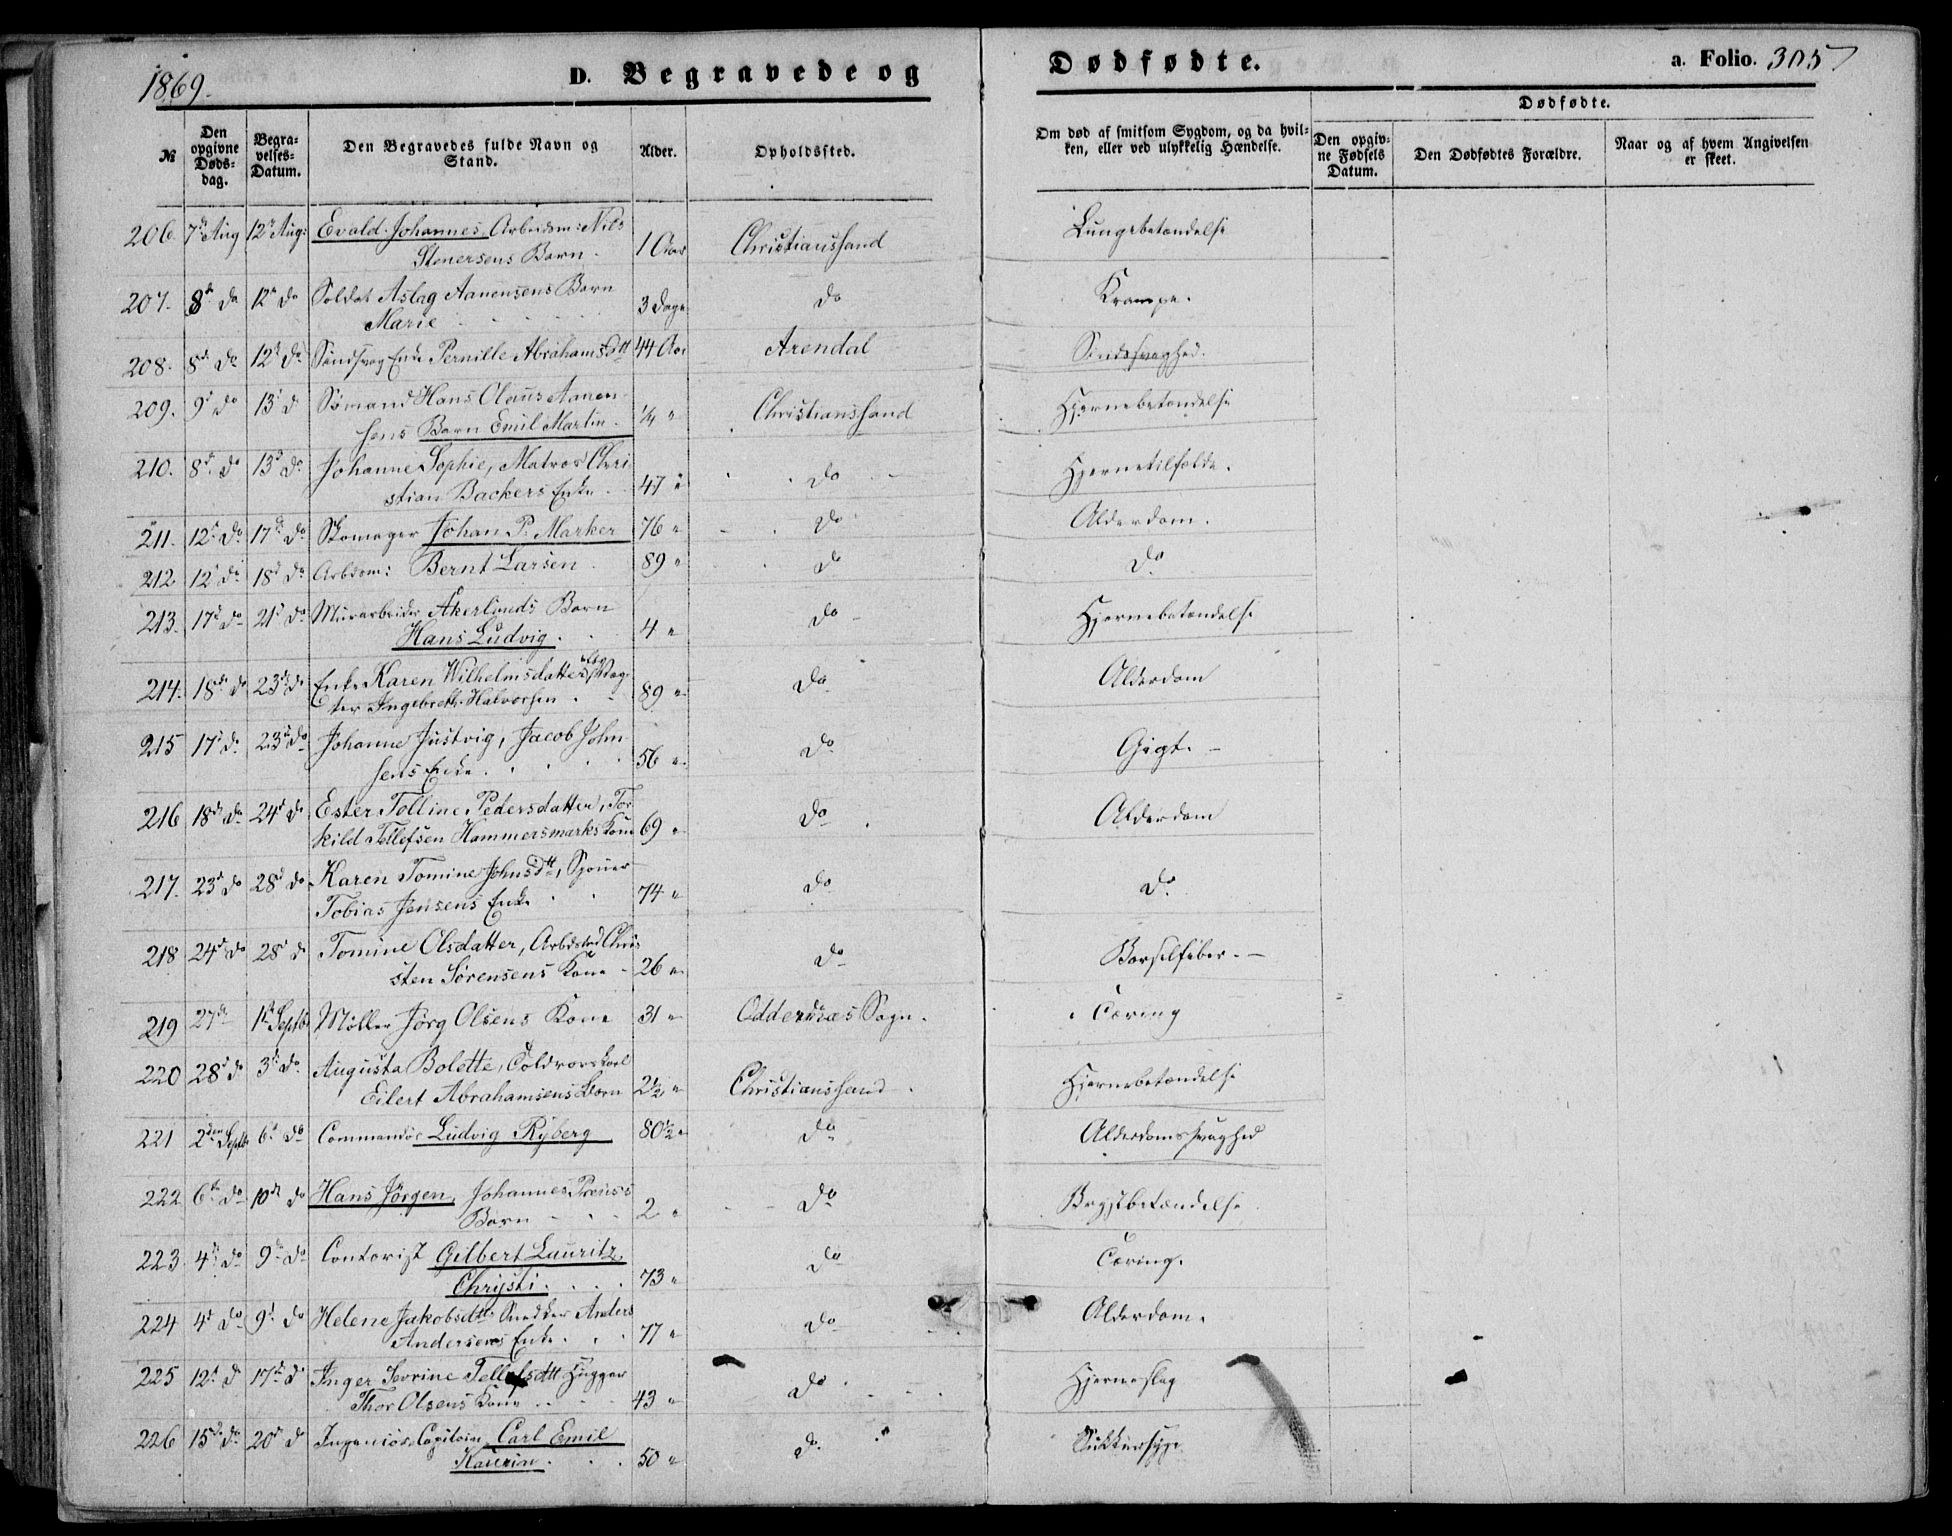 1869. D. Begravede og Dødfødte. a. Folio. 305
Dødfødte.
№ Den opgivne Døds-dag. Begra-velses-Datum. Den Begravedes fulde Navn og Stand. Alder. Opholdssted. Om død af smitsom Sygdom, og da hvil-ken, eller ved ulykkelig Hændelse. Den opgiv-ne Fødsels Datum. Den Dødfødtes Forældre. Naar og af hvem Angivelsen er skeet.
206. 7d Aug 12d Aug: Evald Johannes, Arbeidsm: Nils
Stenersens Barn. 1 Aar Christianssand Lungebetændelse
207. 8d do 12d do Soldat Aslag Aanensens Barn
Marie 3 Dage do Krampe.
208. 8d do 12d do Sindsvag Enke Pernille Abrahamsdtt 44 Aar Arendal Sindssvaghed.
209. 9d do 13d d Sømand Hans Olaus Aanen-
sens Barn Emil Martin. 1/4 " Christianssand Hjernebetændelse
210. 8d do 13d do Johanne Sophie, Matros Chri-
stian Backers Enke 47 " do Hjernetilfælde.
211. 12d do 17d do Skomager Johan P. Marker 76 " do Alderdom.
212 12d do 18d do Arbdsm: Bernt Larsen 89 " do do
213. 17d do 21d do Murarbeider Åkerlunds Barn
Hans Ludvig. 4 " do Hjernebetændelse
214. 18d do 23d do Enke Karen Wilhelmsdatter
Ingebreth Halvorsen. 89 " do Alderdom
215 17d do 23d do Johanne Justvig, Jacob John-
sens Enke. 56 " do Gigt. -
216 18d do 24d do Ester Tolline Pedersdatter, Tor-
kild Tellefsen Hammersmarks Kone 69 " do Alderdom
217. 23d do 28d do Karen Tomine Johnsdtt, Sjouer
Tobias Jensens Enke 74 " do do
218 24d do 28d d Tomine Olsdatter, Chri-
sten Sørensens Kone - 26 " do Barselfeber. -
219 27d 1st Septbr Møller Jörg Olsens Kone 31 " Oddernæs Sogn. Tæring
220 28d do 3d do Augusta Bolette, Toldroerskarl
Eilert Abrahamsens Barn 2 1/2 " Christianssand Hjernebetændelse
221 2den Septbr 6d do Commandør Ludvig Ryberg 80 1/2 " do Alderdomssvaghed
222 6d do 10d do Hans Jörgen, Johannes Preuss
Barn 2 " do Brystbetændelse
223. 4d do 9d do Contorist Gilbert Lauritz
Chrysti. 73 " do Tæring.
224 4d do 9d do Helene Jakobsdtt Snedker Anders
Andersens Enke. 77 " do Alderdom.
225 12d d 17d d Inger Sevrine Tellefsdtt Hugger
Thor Olsens Kone 43 " do Hjerneslag
226 15d do 20d d Ingeniør Capitain Carl Emil
Kaurin. 50 " do. Sukkersyge